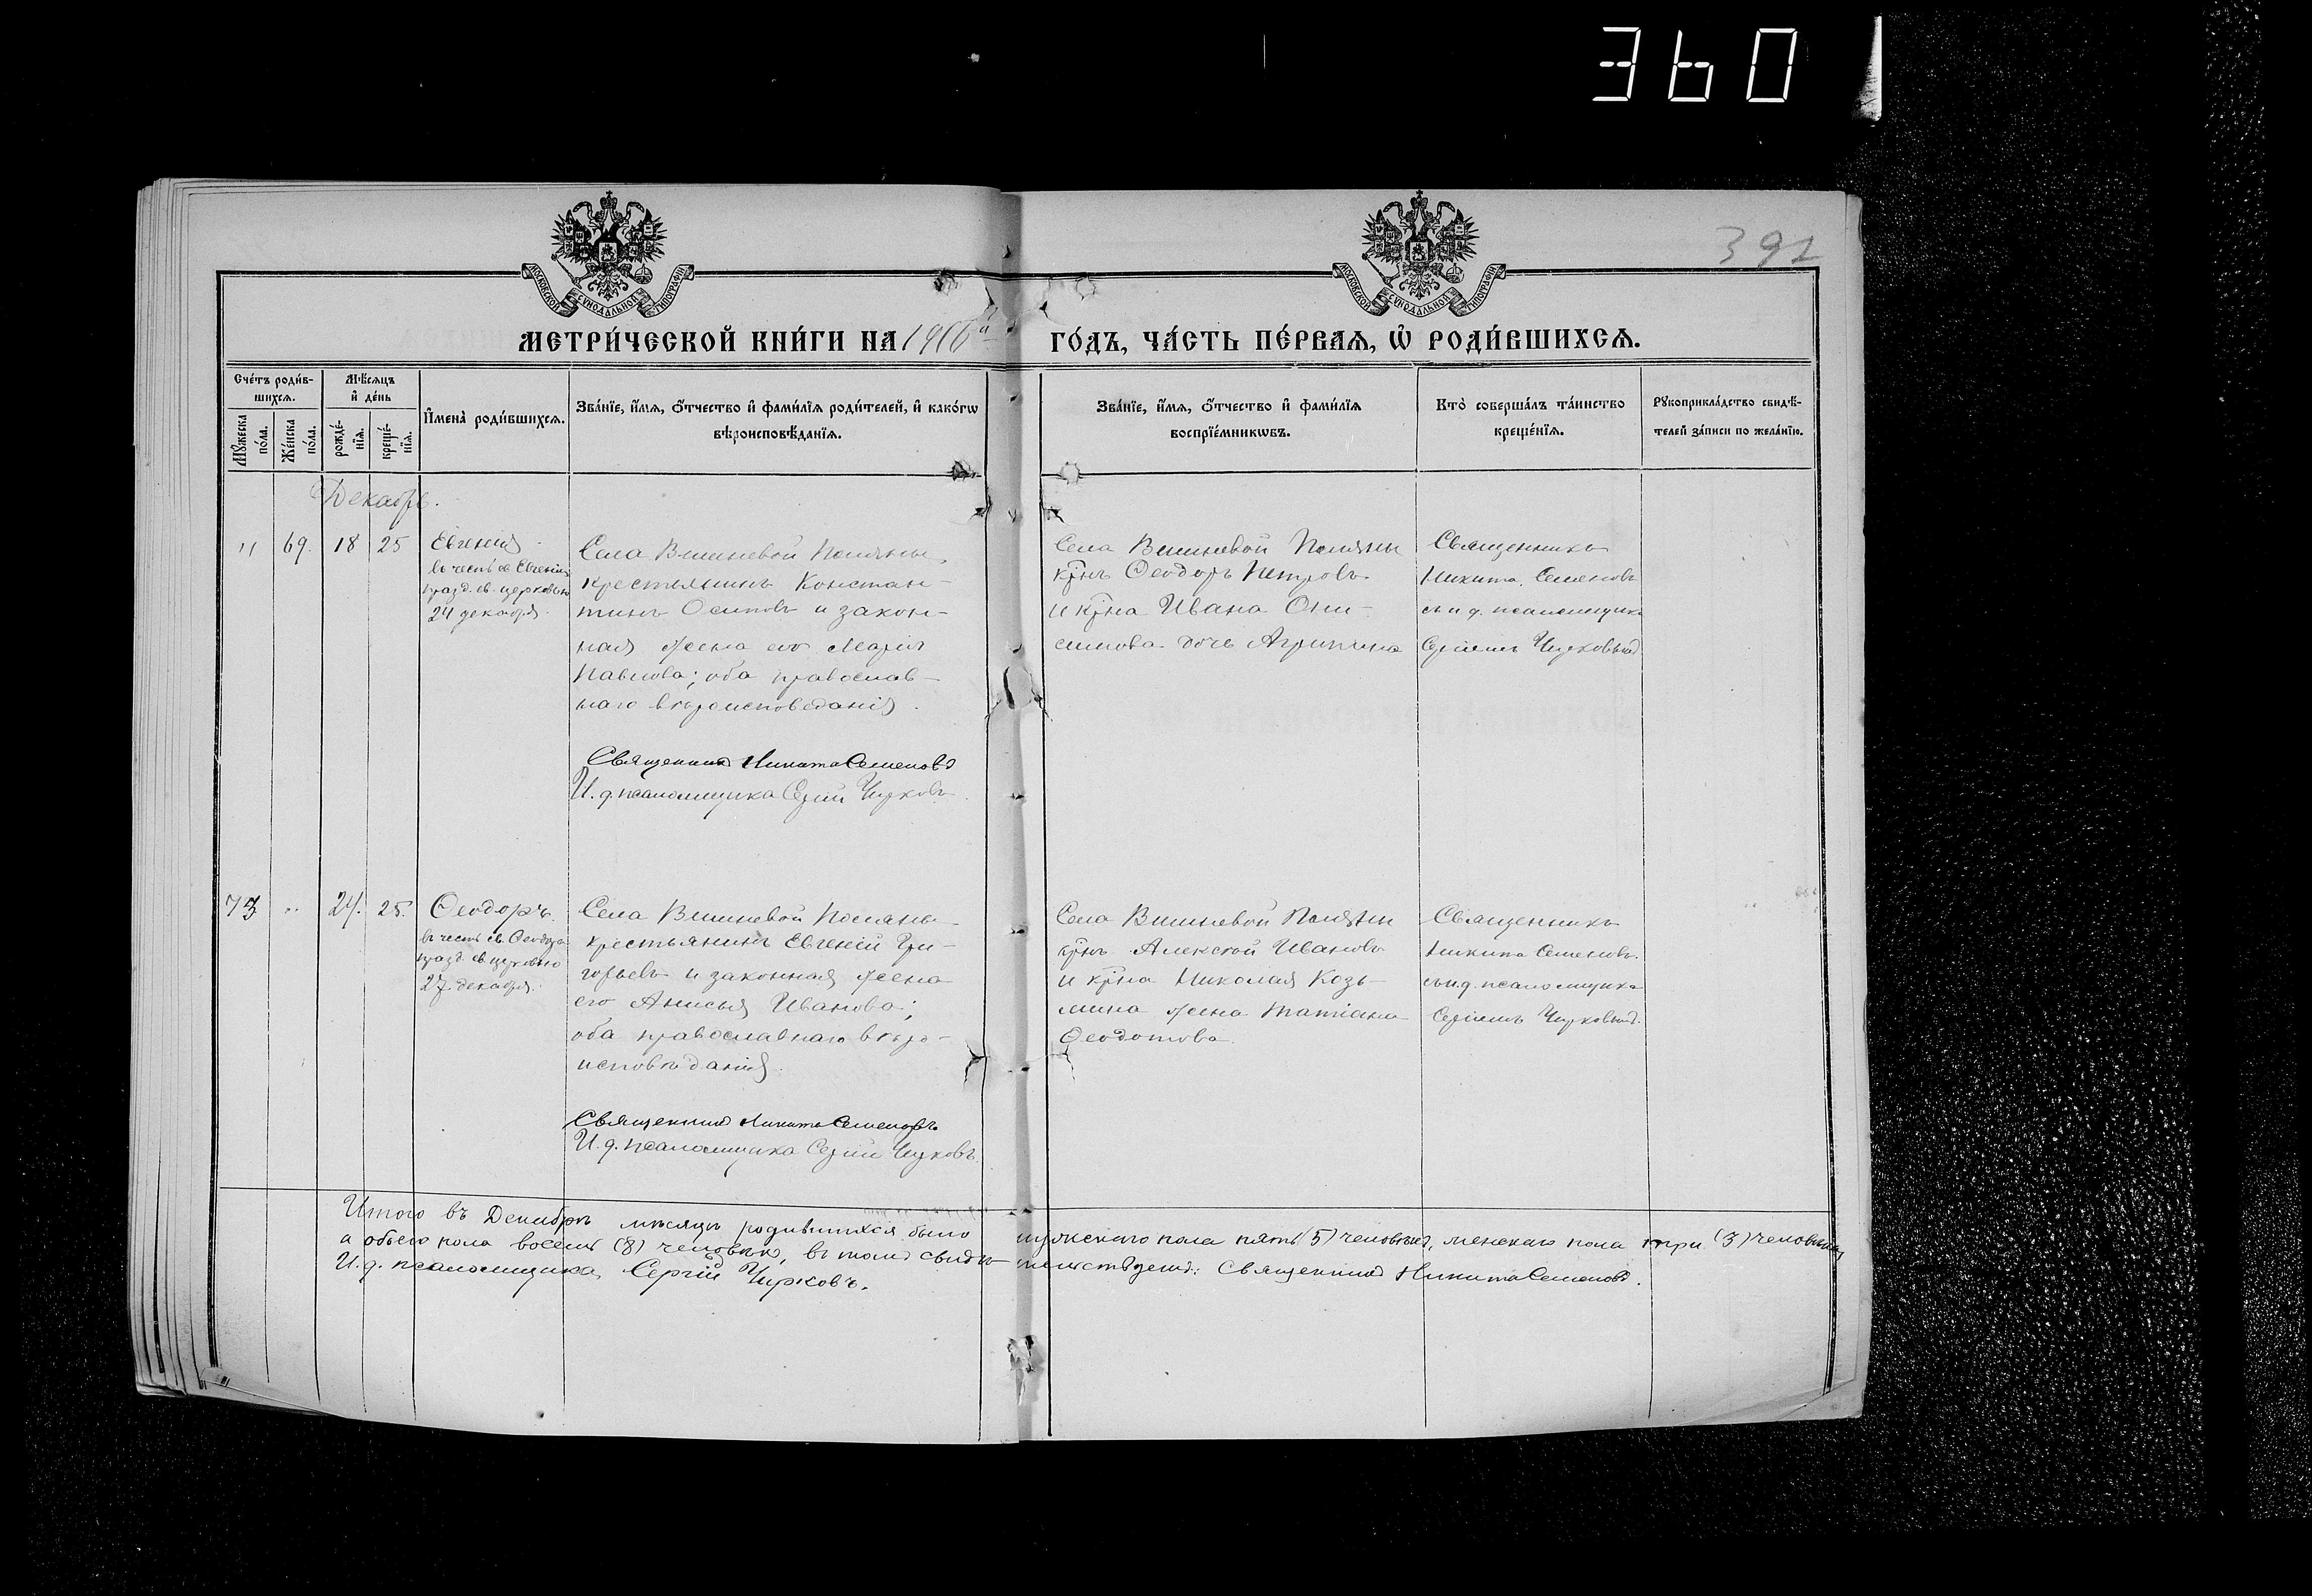 360
392
МОСКОВСКОЙ СѴНОДАЛЬНОЙ ТИПОГРАФІИ
МОСКОВСКОЙ СѴНОДАЛЬНОЙ ТИПОГРАФІИ
МЕТРИ́ЧЕСКОЙ КНИ́ГИ НА 1916й ГО́ДЪ, ЧА́СТЬ ПЕ́РВАѦ, Ѡ҆ РОДИ́ВШИХСѦ.
Сче́тъ роди́в-
шихсѧ.
Мꙋ́жеска по́ла.
Же́нска по́ла.
Мѣ́сѧцъ
и҆ де́нь
рожде́-
нїѧ.
креще́-
нїѧ.
И҆мена̀ роди́вшихсѧ.
Зва́нїе, и҆́мѧ, ѻ҆́тчество и҆ фами́лїѧ роди́телей, и҆ како́гѡ
вѣроисповѣ́данїѧ.
Зва́нїе, и҆́мѧ, ѻ҆́тчество и҆ фами́лїѧ
воспрїе́мникѡвъ.
Кто̀ соверша́лъ та́инство
креще́нїѧ.
Рꙋкоприкла́дство свидѣ́-
телей за́писи по жела́нїю.
Декабрь.
" 69. 18 25
Евгенія
въ честь св Евгеніи
празд. св. церковью
24 декабря.
Села Вишневой Поляны
крестьянинъ Констан-
тинъ Осиповъ и закон-
ная жена его Марія
Павлова; оба православ-
наго вѣроисповеданія.
Священникъ Никита Семеновъ
И. д. псаломщика Сергій Чирковъ
Села Вишневой Поляны
кр̃нъ Ѳеодоръ Петровъ
и кр̃на Ивана Они-
симова дочь Агрипина
Священникъ
Никита Семеновъ
съ и д. псаломщика
Сергіемъ Чирковымъ
73 " 24. 25.
Ѳеодоръ.
въ честь св. Ѳеодора
празд. св. церковью
27 декабря.
Села Вишневой Поляны
крестьянинъ Евгеній Гри-
горьевъ и законная жена
его Анисья Иванова;
оба православнаго вѣро-
исповѣданія.
Священникъ Никита Семеновъ
И. д. псаломщика Сергій Чирковъ.
Села Вишневой Поляны
кр̃нъ Алексѣй Ивановъ
и кр̃на Николая Козь-
мина жена Татіана
Ѳеодотова.
Священникъ
Никита Семеновъ.
съ и.д. псаломщика
Сергіемъ Чирковымъ.
Итого въ Декабрѣ мѣсяцѣ родившихся было мужскаго пола пять (5) человѣкъ, женскаго пола три (3) человѣка,
а обоего пола восемь (8) человѣкъ, въ томъ свидѣтельствуемъ: Священникъ Никита Семеновъ.
И. д. псаломщика Сергій Чирковъ.